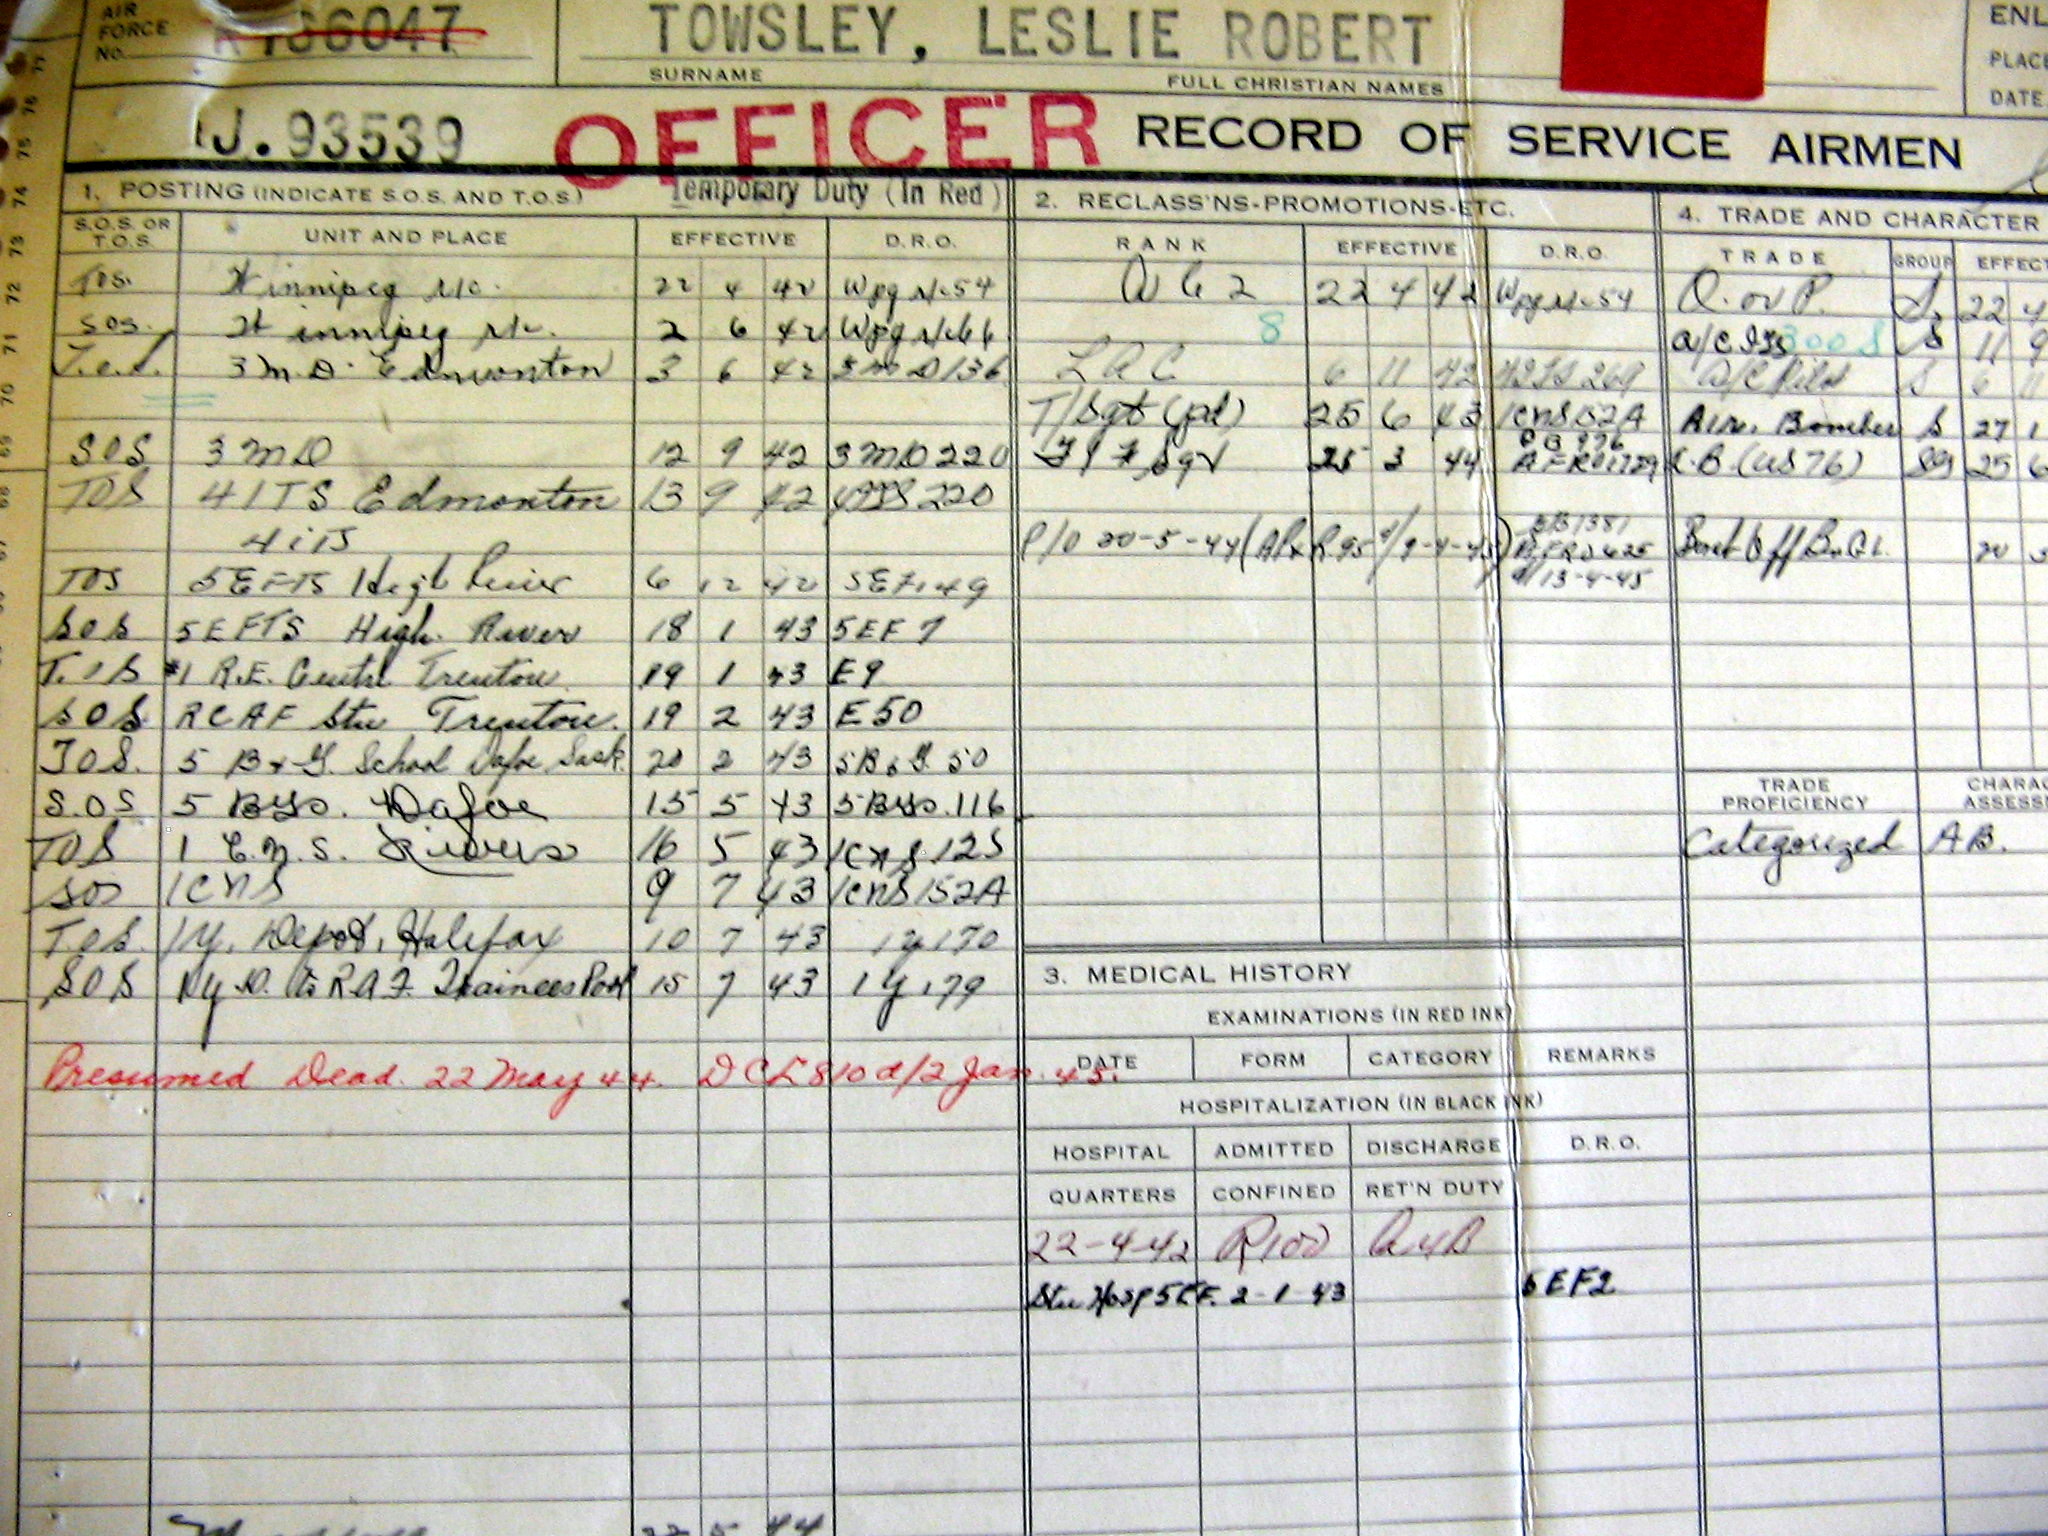 AIR FORCE No.
TOWSLEY, LESLIE ROBERT
SURNAME FULL CHRISTIAN NAMES
ENL
PLACE
DATE
J.93539 OFFICER RECORD OF SERVICE AIRMEN
1. POSTING (INDICATE S.O.S. AND T.O.S.) Temporary Duty (In Red)
S.O.S. OR T.O.S. UNIT AND PLACE EFFECTIVE D.R.O.
TOS. Winnipeg 22 4 42 Wpg 54
SOS. Winnipeg 2 6 42 Wpg 66
T.O.S. 3 M.D. Edmonton 3 6 42 3 M D 136
SOS 3 MD 12 9 42 3 MD 220
TOS 4 ITS Edmonton 13 9 42 220
4 ITS
TOS 5 EFTS High River 6 12 42 5EF 149
SOS 5 EFTS High River 18 1 43 5EF 7
T.O.S #1 R.E. Centre Trenton 19 1 43 E9
SOS RCAF Stn Trenton. 19 2 43 E50
TOS. 5 B & G. School Dafoe Sask. 20 2 43 5B&G 50
S.O.S 5 B&G. Dafoe 15 5 43 5B&G.116
TOS 1 C.N.S. Rivers 16 5 43 1CNS 125
SOS 1 CNS 9 7 43 1CNS 152A
T.O.S. 1 Y. Depot, Halifax 10 7 43 1Y170
SOS 1 Y D. to R.A.F. Trainees Pool 15 7 43 1Y.179
Presumed Dead. 22 May 44. DCL 810 d/2 Jan. 45.
22 5 44
2. RECLASS'NS-PROMOTIONS-ETC.
RANK EFFECTIVE D.R.O.
AC2 22 4 42 Wpg 54
8
LAC 6 11 42 4ITS 269
T/Sgt (pd) 25 6 43 1CNS 152A
Flt Sgt 25 3 44
P/O 20-5-44
d/13-4-45
3. MEDICAL HISTORY
EXAMINATIONS (IN RED INK)
DATE FORM CATEGORY REMARKS
HOSPITALIZATION (IN BLACK INK)
HOSPITAL ADMITTED DISCHARGE D.R.O.
QUARTERS CONFINED RET'N DUTY
22-4-42 R100 A4B
Stn Hosp 5EF. 2-1-43 5EF2
4. TRADE AND CHARACTER
TRADE GROUP EFFECT
O. or P. S. 22 4
A/C S 11 9
A/C Pilot S 6 11
Air. Bomber S 27 1
A.B. (US 76) SG 25 6
20 5
TRADE PROFICIENCY CHARAC ASSESSM
Categorized AB.
71
76
75
74
73
72
71
70
69
68
67